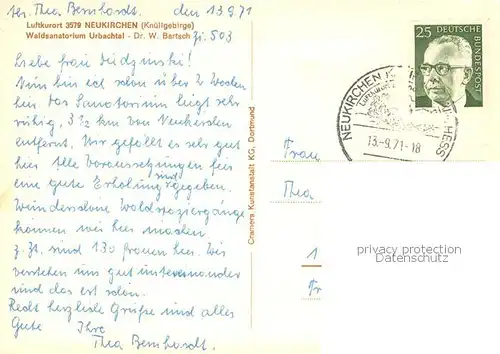 Abs. Thea Bernhardt. den 13.9.71
Luftkurort 3579 NEUKIRCHEN (Knüllgebirge)
Waldsanatorium Urbachtal - Dr. W. Bartsch
Zi. 503
Liebe Frau
Nun bin ich schon über 2 Wochen
hier das Sanatorium liegt sehr
ruhig, 3½ km von Neukirchen
entfernt. Mir gefällt es sehr gut
hier Alle Voraussetzungen für
eine gute Erholung sind gegeben.
Wunderschöne Waldspaziergänge
können wir hier machen
z.Zt. sind 130 Frauen hier. Wir
verstehen uns gut untereinander
und das ist schön.
Recht herzliche Grüße und alles
Gute Ihre
Thea Bernhardt.
Cramers Kunstanstalt KG, Dortmund
25 DEUTSCHE BUNDESPOST
NEUKIRCHEN HESS
Luftkurort
13.-9.71-18
Frau
Thea
1
Fr
privacy protection